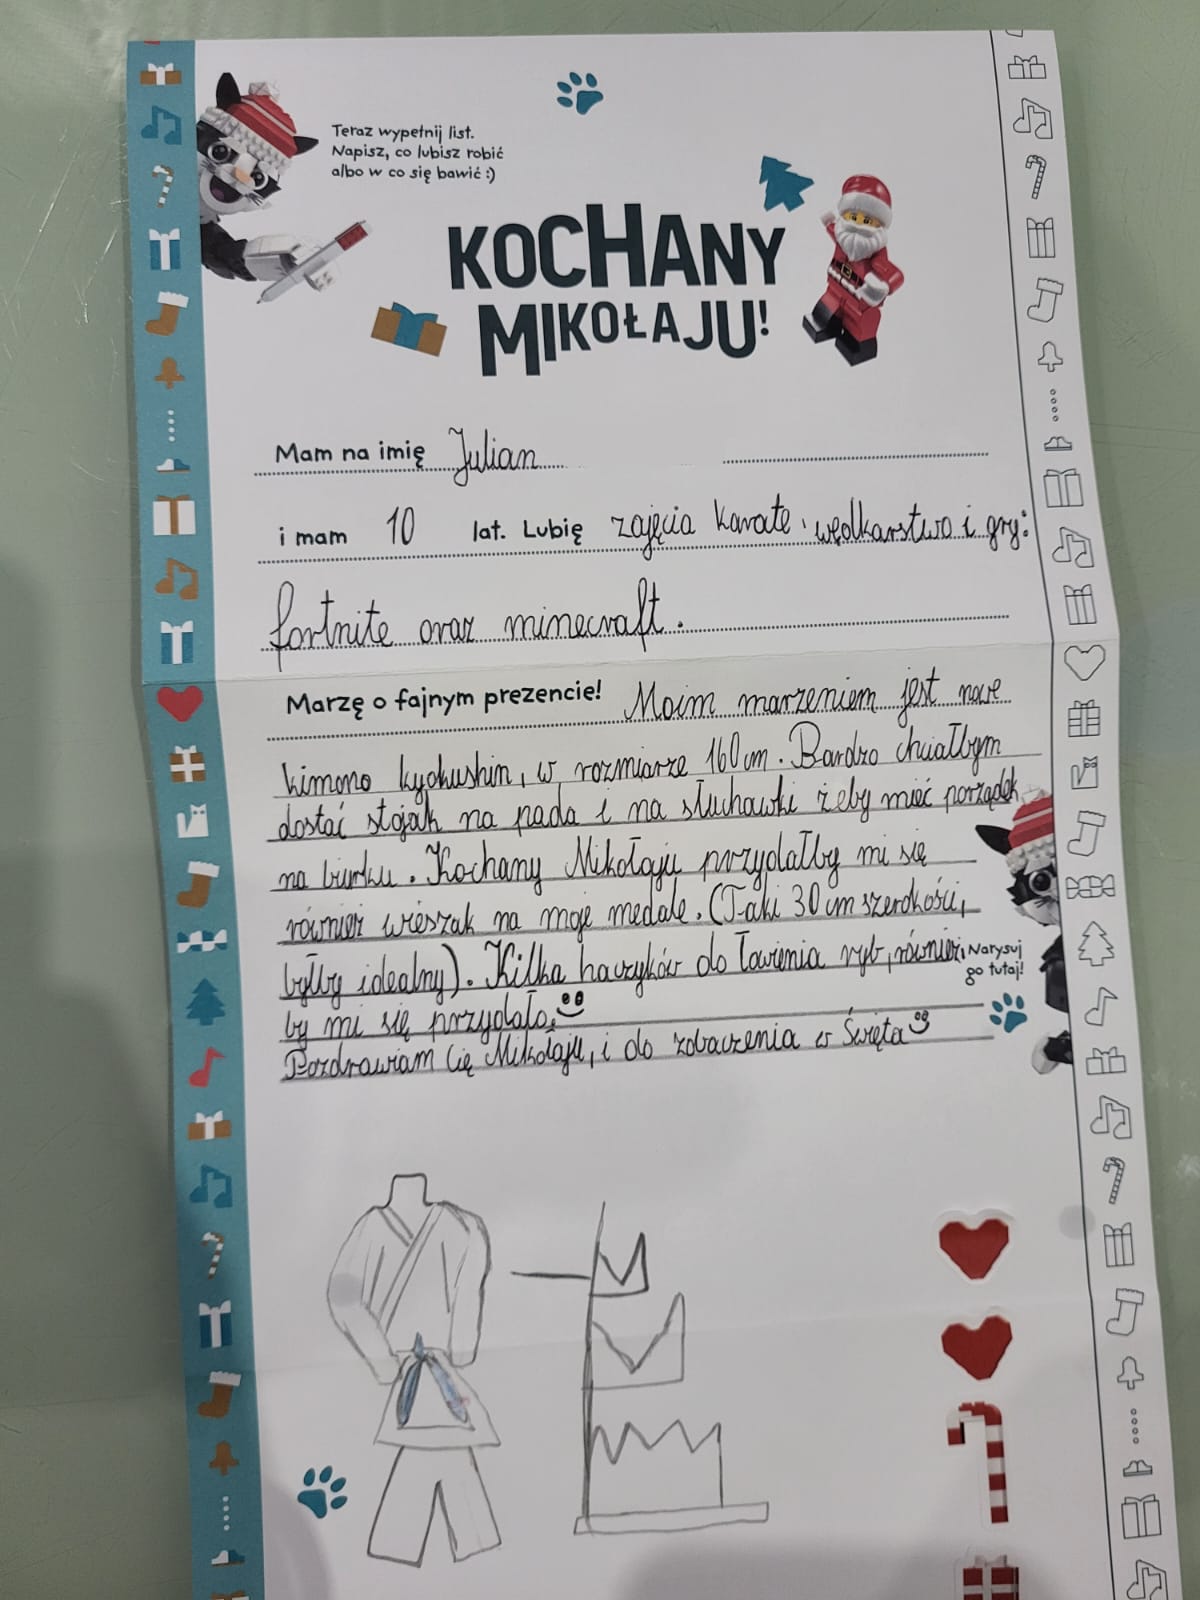 Teraz wypełnij list.
Napisz, co lubisz robić
albo w co się bawić :)
KOCHANY
MIKOŁAJU!
Mam na imię Julian
i mam 10 lat. Lubię zajęcia karate, wędkarstwo i gry:
fortnite oraz minecraft.
Marzę o fajnym prezencie! Moim marzeniem jest nowe
kimono kyokushin, w rozmiarze 160cm. Bardzo chciałbym
dostać stojak na pada i na słuchawki żeby mieć porządek
na biurku. Kochany Mikołaju przydałby mi się
również wieszak na moje medale. (Taki 30 cm szerokości,
byłby idealny). Kilka haczyków do łowienia ryb, również
by mi się przydało.
Pozdrawiam Cię Mikołaju, i do zobaczenia w Święta
Narysuj
go tutaj!